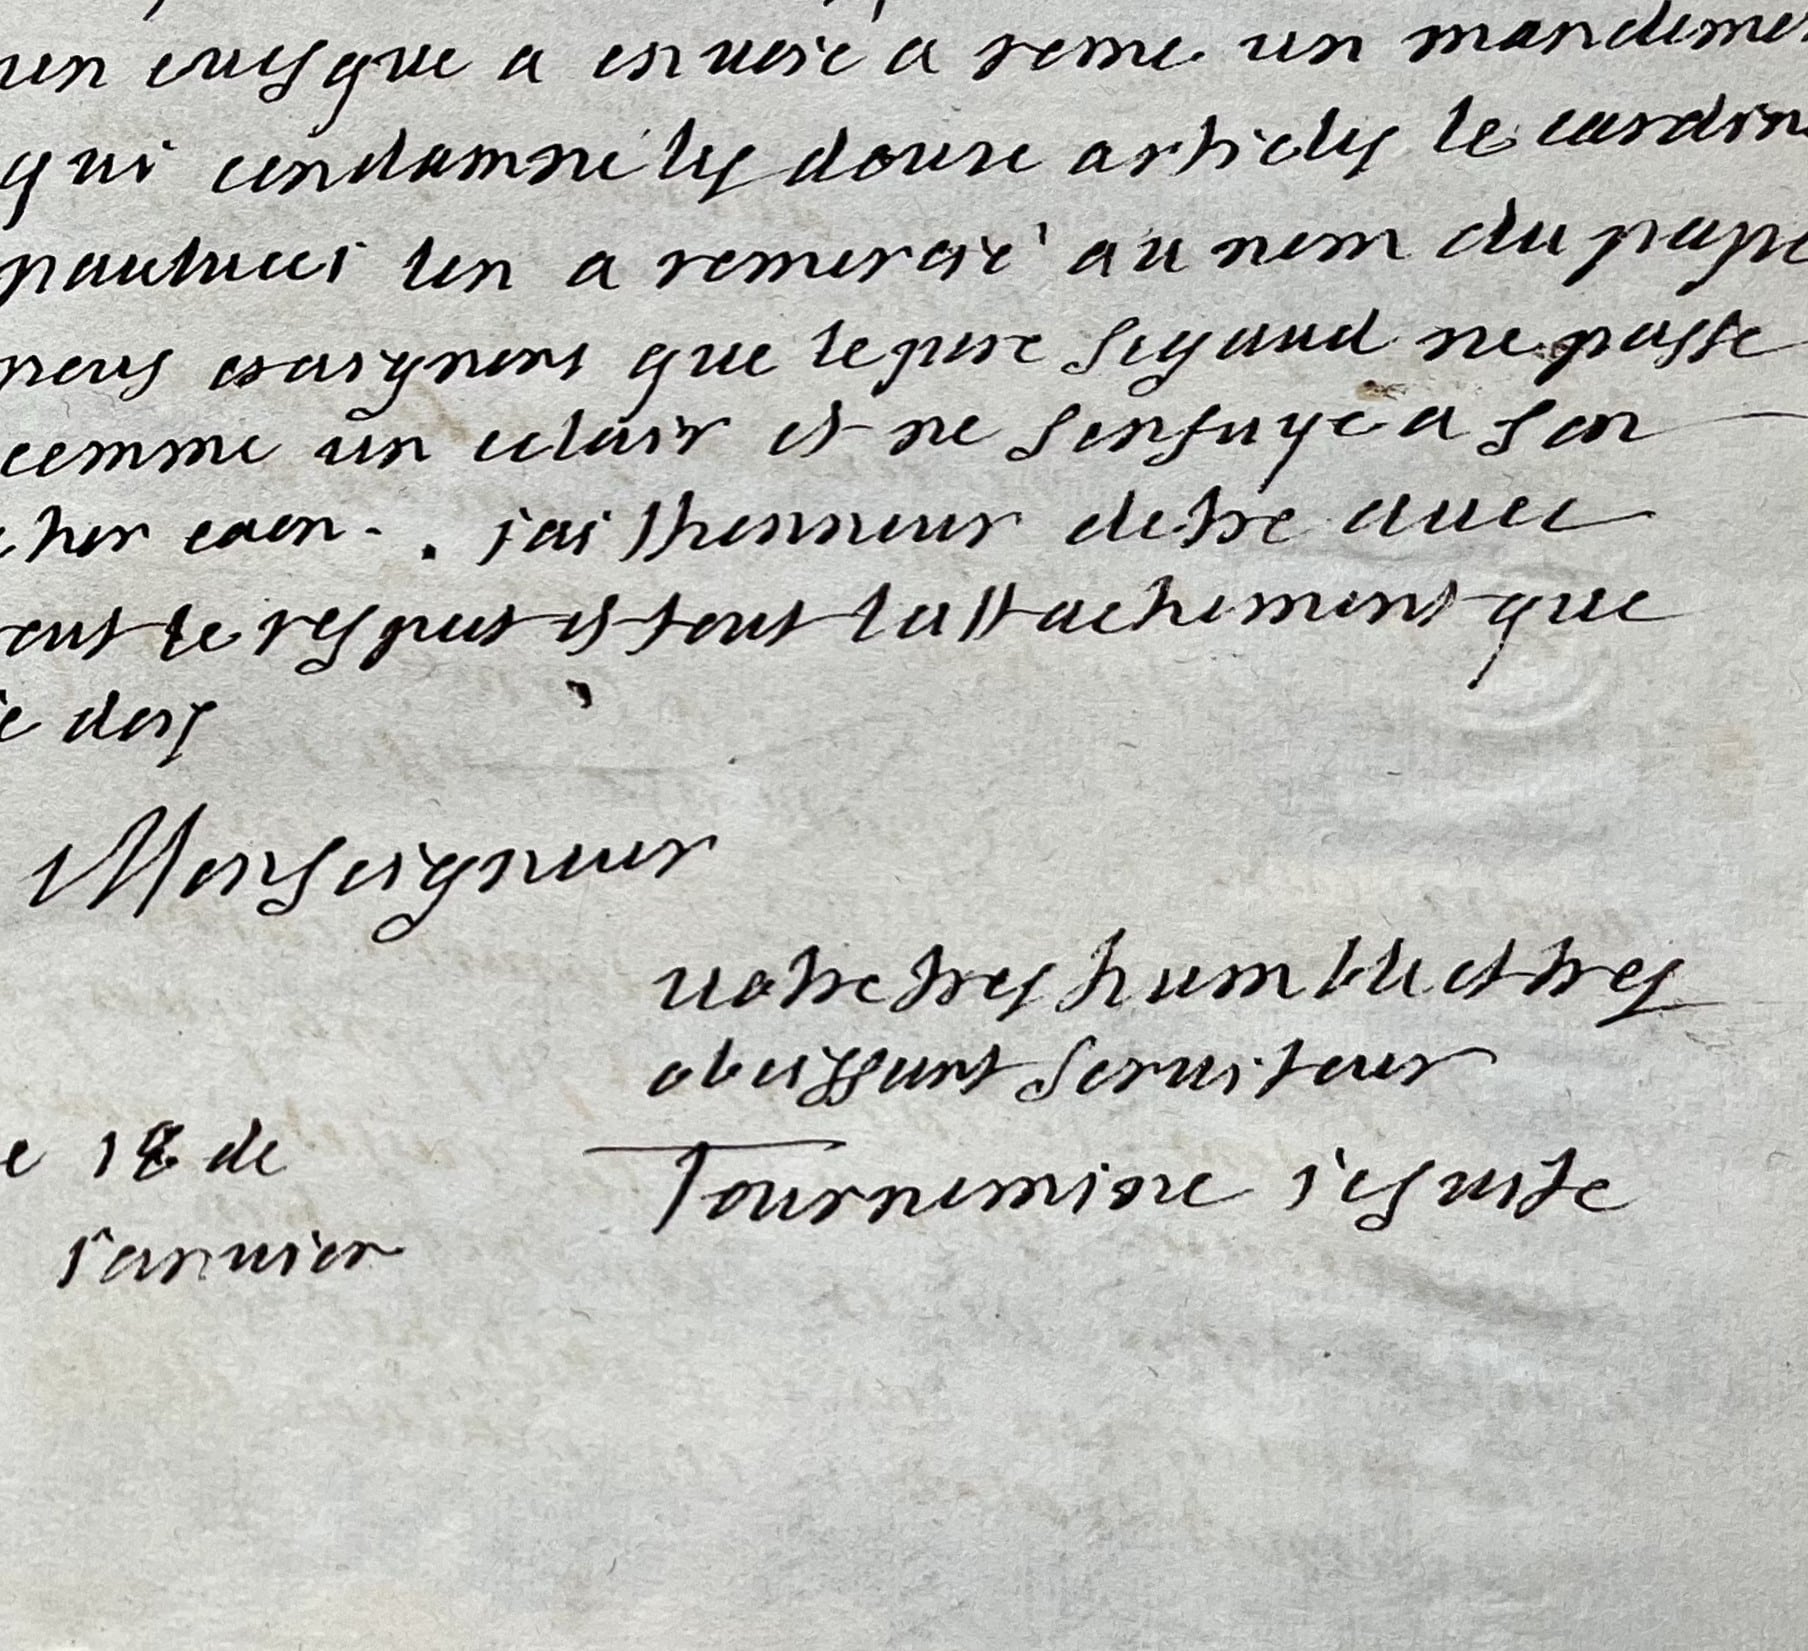 un euesque a enuoié a rome un mandemen
qui condamne les douze articles le cardin
paulucci len a remercié au nom du pape
nous craignons que le pere segaud ne passe
comme un eclair et ne senfuye a son
cher caen. jai lhonneur detre auec
tout le respect et tout lattachement que
ie dois
Monseigneur
uotre tres humble et tres
obeissant seruiteur
Tournemine iesuite
e 18 de
ianuier